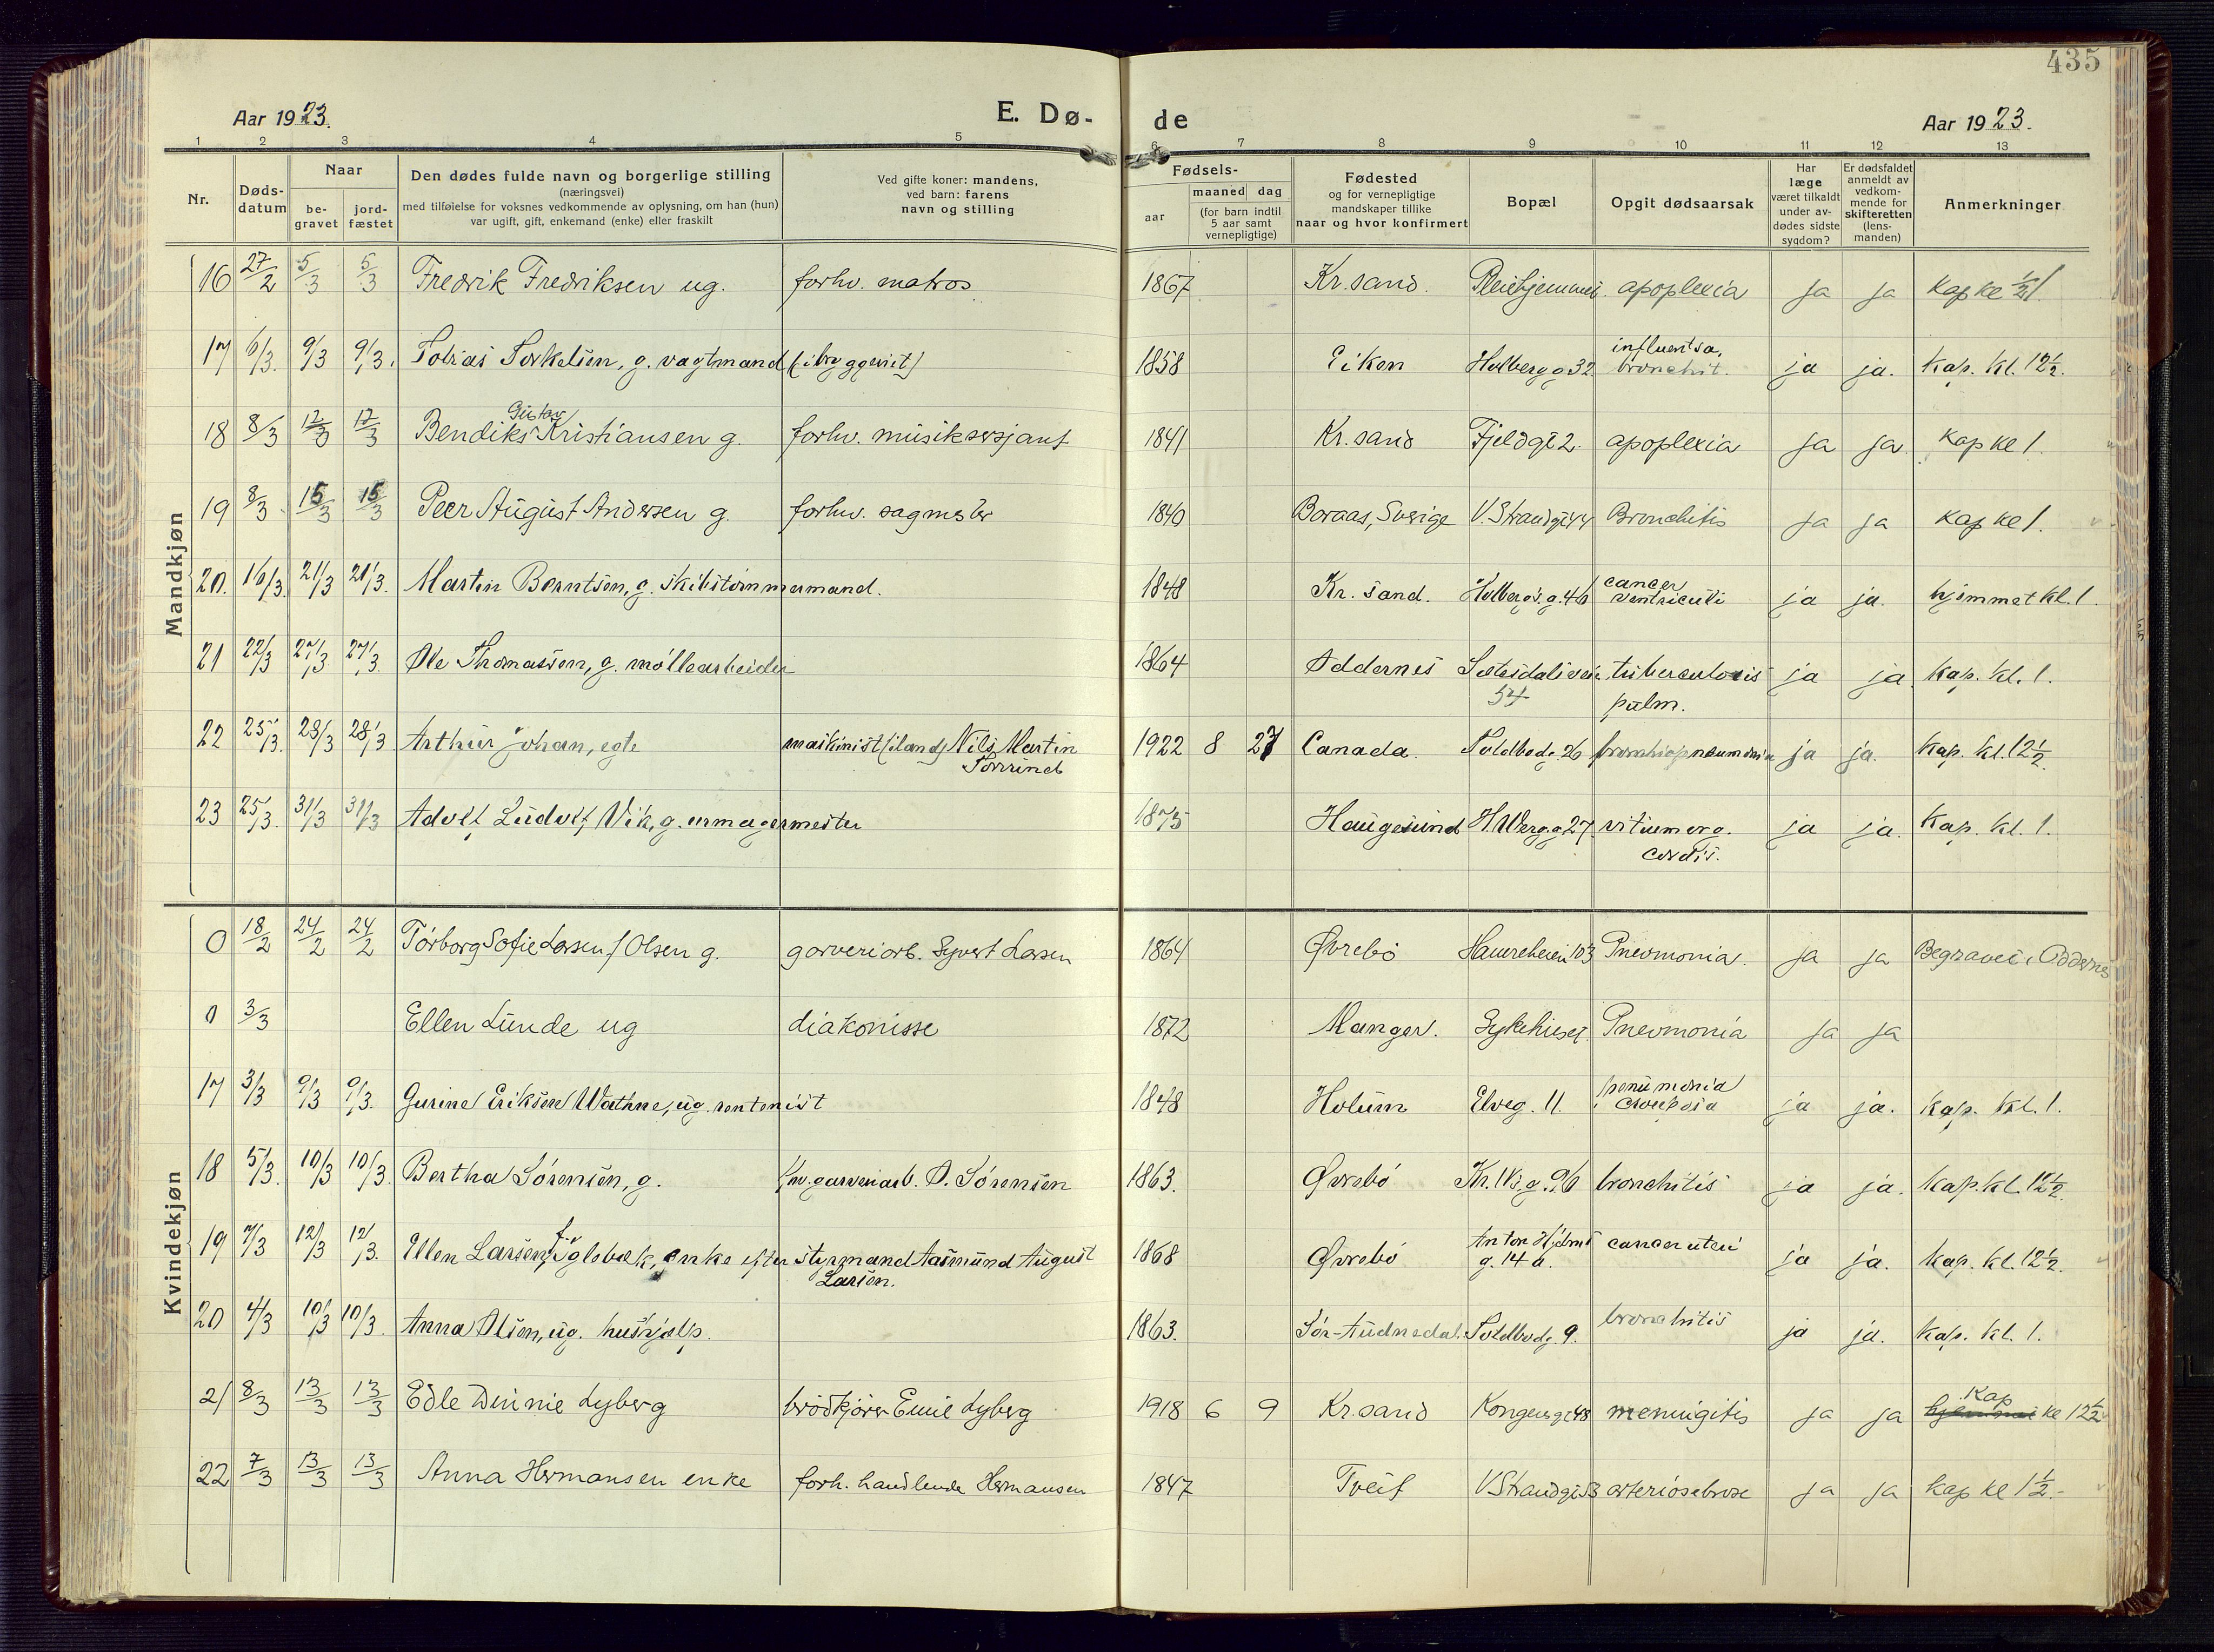 435
Aar 1923. E. Dø- de Aar 1923.
1 2 3 4 5 6 7 8 9 10 11 12 13
Nr.
Døds-
datum
Naar
be-
gravet
jord-
fæstet
Den dødes fulde navn og borgerlige stilling
(næringsvei)
med tilføielse for voksnes vedkommende av oplysning, om han (hun)
var ugift, gift, enkemand (enke) eller fraskilt
Ved gifte koner: mandens,
ved barn: farens
navn og stilling
Fødsels-
aar
maaned dag
(for barn indtil
5 aar samt
vernepligtige)
Fødested
og for vernepligtige
mandskaper tillike
naar og hvor konfirmert
Bopæl
Opgit dødsaarsak
Har
læge
været tilkaldt
under av-
dødes sidste
sygdom?
Er dødsfaldet
anmeldt av
vedkom-
mende for
skifteretten
(lens-
manden)
Anmerkninger
Mandkjøn
16 27/2 5/3 5/3 Fredrik Fredriksen ug. forhv. matros 1867 Kr.sand. Pleiehjemmet apoplexia ja ja kap ke 1/2 1
17 6/3. 9/3 9/3. Tobias Torkelsen, g. vagtmand (i bryggeriet) 1858 Eiken Holbergg 32 influentsa, bronchit. ja ja. Kap. kl. 12 1/2.
18 8/3 12/3 12/3 Bendiks Gustav Kristiansen g. forhv. musiksersjant 1841 Kr.sand Fjeldgt 2. apoplexia ja ja kap ke 1.
19 8/3 15/3 15/3 Peer August Andersen g. forhv. sagmester 1840 Boraas, Sverige V.Strandgt 44 Bronchitis ja ja kap ke 1.
20. 16/3. 21/3 21/3. Martin Berntsen, g. skibstømmermand. 1848 Kr. sand. Holbergs.g. 46 cancer ventriculi ja ja. hjemmet kl. 1.
21 22/3 27/3 27/3. Ole Thomassen, g. møllearbeider 1864 Oddernes Sætesdalsveien 54 tuberculosis pulm. ja ja. Kap. kl. 1.
22 25/3. 28/3 28/3 Arthur Johan, egte maskinist (iland) Nils Martin 1922 8 27 Canada. Toldbodg. 26 bronchiopneumonia ja ja. Kap. kl. 12 1/2.
23 25/3. 31/3 31/3 Adolf Ludvig Vik, g. urmagermester 1875 Haugesund Holbergg 27. vitium org. cordis. ja ja. Kap. kl. 1.
Kvindekjøn
0 18/2 24/2 24/2 Torborg Sofie Larsen f Olsen g. garveriarb. Syvert Larsen 1864 Øvrebø 103 Pneumonia. ja ja Begravet i Oddernes
0 3/3 Ellen Lunde ug diakonisse 1872 Manger. Sykehuset. Pneumonia ja ja
17 3/3 9/3 9/3. Gurine Eriksen Wathne, ug. rentenist 1848 Holum Elveg. 11. pneumonia crouposa ja ja. Kap. kl. 1.
18 5/3. 10/3 10/3. Bertha Sørensen, g. fhv. garveriarb. O. Sørensen 1863. Øvrebø Kr. IVs. g. 96 bronchitis ja ja. Kap. kl. 12 1/2.
19 7/3 12/3 12/3. Ellen Larsen, f. Iglebæk, enke efter styrmand Aasmund August Larsen. 1868 Øvrebø Anton Hjelms g. 14 a. cancer uteri ja ja. Kap. kl. 12 1/2.
20 4/3 10/3 10/3. Anna Olsen, ug. hushjelp. 1863. Sør-Audnedal. Toldbodg. 9. bronchitis ja ja. Kap. kl. 1.
21 8/3 13/3 13/3 Edle Winnie Lyberg brødkjører Emil Lyberg 1918 6 9 Kr.sand Kongensgt 48 meningitis ja ja Kap hjemmet ke 12 1/2
22 7/3 13/3 13/3 Anna Hermansen enke forh. handlende Hermansen 1847 Tveit V.Strandgt 53 arteriosclerose ja ja kap kl 1 1/2.